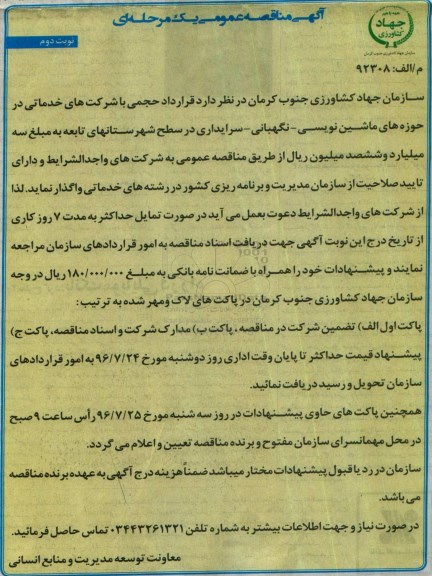 آگهی مناقصه عمومی یک مرحله‌ای
نوبت دوم
جهاد
کشاورزی
سازمان جهاد کشاورزی جنوب کرمان
م/الف: ۹۲۳۰۸
سازمان جهاد کشاورزی جنوب کرمان در نظر دارد قرارداد حجمی با شرکت های خدماتی در
حوزه های ماشین نویسی - نگهبانی - سرایداری در سطح شهرستانهای تابعه به مبلغ سه
میلیارد و ششصد میلیون ریال از طریق مناقصه عمومی به شرکت های واجدالشرایط و دارای
تایید صلاحیت از سازمان مدیریت و برنامه ریزی کشور در رشته های خدماتی واگذار نماید. لذا
از شرکت های واجدالشرایط دعوت بعمل می آید در صورت تمایل حداکثر به مدت ۷ روز کاری
از تاریخ درج این نوبت آگهی جهت دریافت اسناد مناقصه به امور قراردادهای سازمان مراجعه
نمایند و پیشنهادات خود را همراه با ضمانت نامه بانکی به مبلغ ۱۸۰/۰۰۰/۰۰۰ ریال در وجه
سازمان جهاد کشاورزی جنوب کرمان در پاکت های لاک و مهر شده به ترتیب:
پاکت اول الف) تضمین شرکت در مناقصه، پاکت ب) مدارک شرکت و اسناد مناقصه، پاکت ج)
پیشنهاد قیمت حداکثر تا پایان وقت اداری روز دوشنبه مورخ ۹۶/۷/۲۴ به امور قراردادهای
سازمان تحویل و رسید دریافت نمائید.
همچنین پاکت های حاوی پیشنهادات در روز سه شنبه مورخ ۹۶/۷/۲۵ رأس ساعت ۹ صبح
در محل مهمانسرای سازمان مفتوح و برنده مناقصه تعیین و اعلام می گردد.
سازمان در رد یا قبول پیشنهادات مختار میباشد ضمناً هزینه درج آگهی به عهده برنده مناقصه
می باشد.
در صورت نیاز و جهت اطلاعات بیشتر به شماره تلفن ۰۳۴۴۳۲۶۱۳۲۱ تماس حاصل فرمائید.
معاونت توسعه مدیریت و منابع انسانی